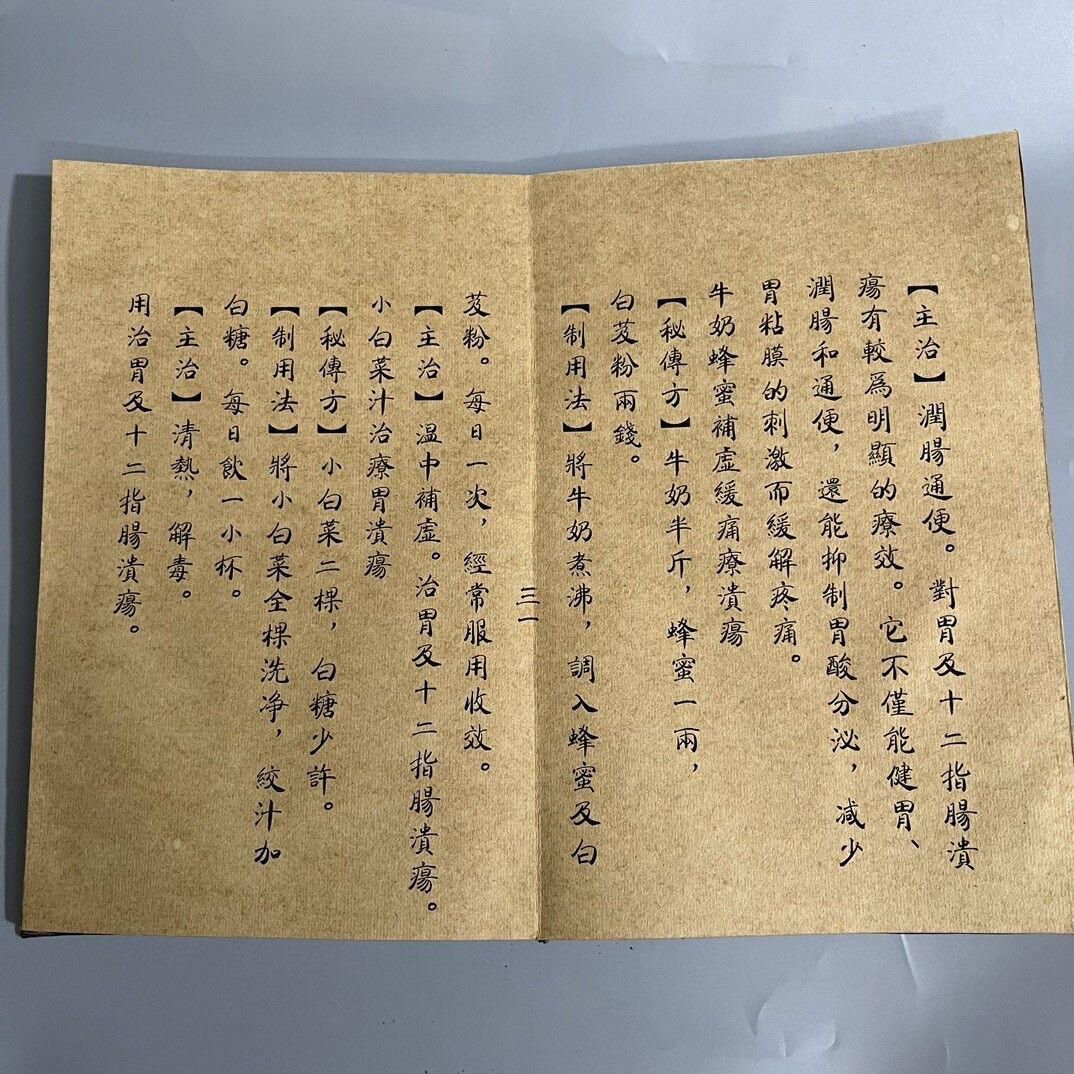 【主治】潤腸通便。對胃及十二指腸潰
瘍有較爲明顯的療效。它不僅能健胃、
潤腸和通便，還能抑制胃酸分泌，减少
胃粘膜的刺激而緩解疼痛。
牛奶蜂蜜補虚緩痛療潰瘍
【秘傳方】牛奶半斤，蜂蜜一兩，
白芨粉兩錢。
【制用法】將牛奶煮沸，調入蜂蜜及白
三一
芨粉。每日一次，經常服用收效。
【主治】温中補虚。治胃及十二指腸潰瘍。
小白菜汁治療胃潰瘍
【秘傳方】小白菜二棵，白糖少許。
【制用法】將小白菜全棵洗净，絞汁加
白糖。每日飲一小杯。
【主治】清熱，解毒。
用治胃及十二指腸潰瘍。